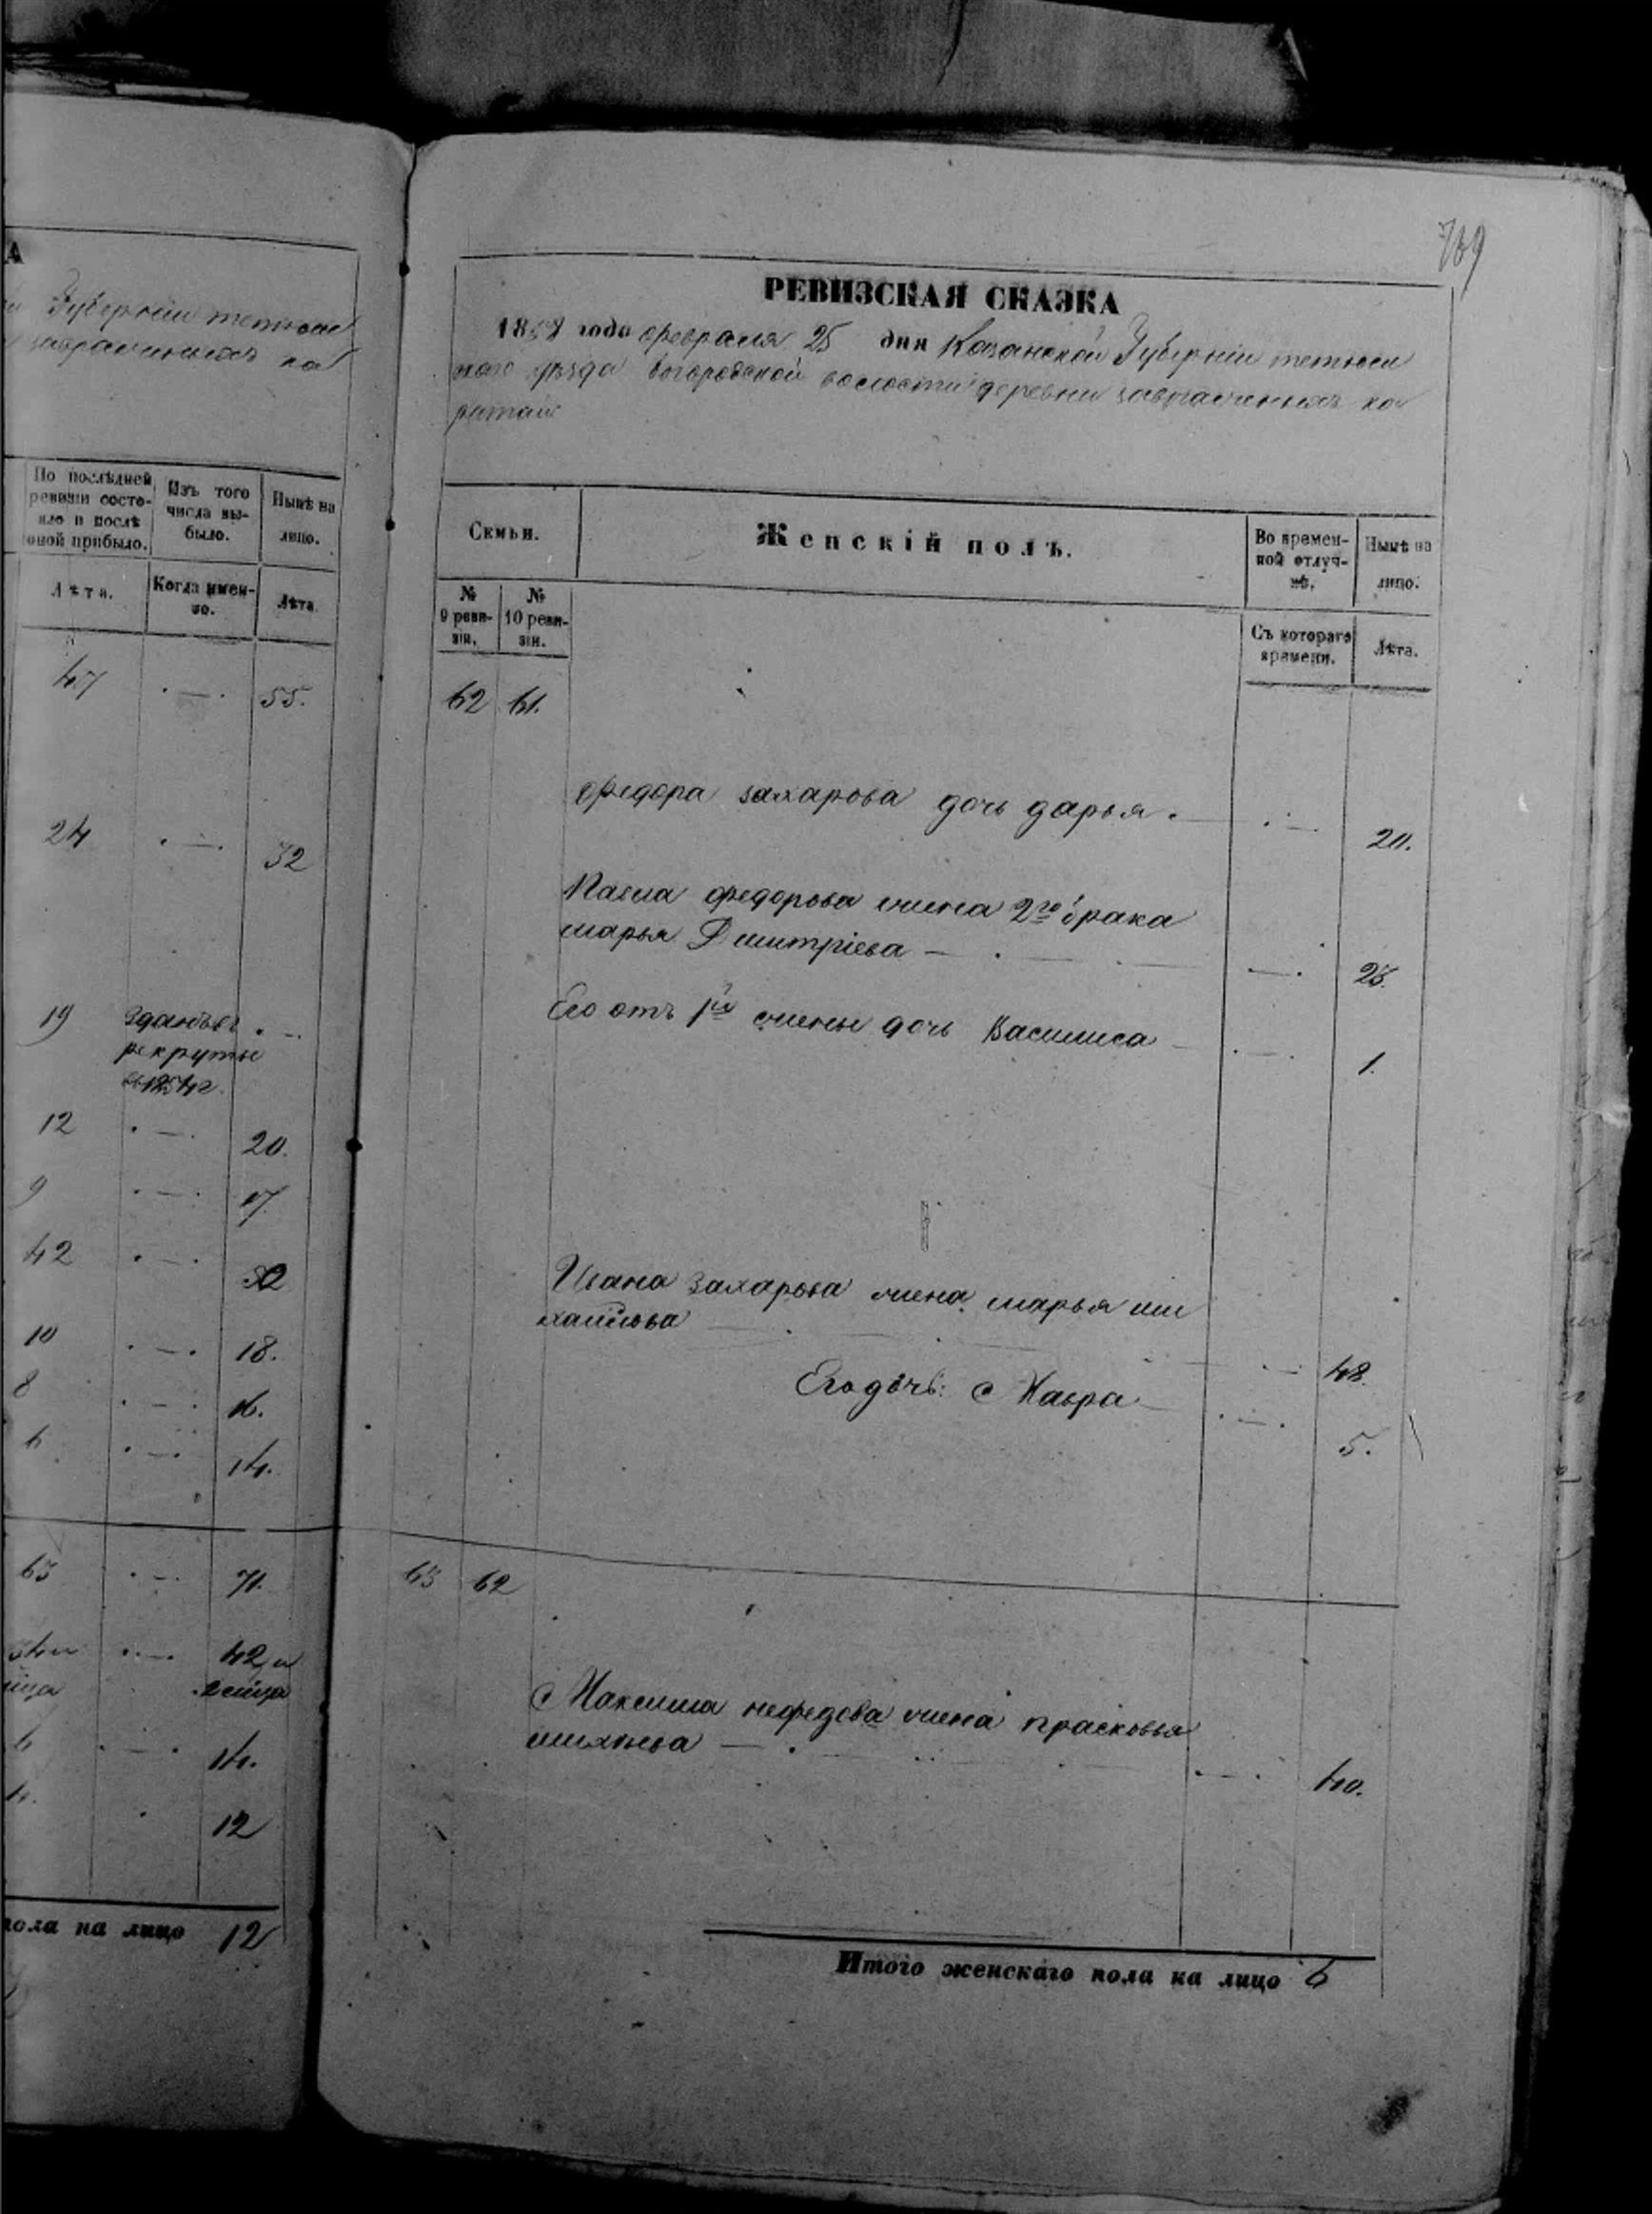 А
Губернiи тетюш
заврачинихъ ка
По послѣдней ревизiи состояло и послѣ оной прибыло.
Изъ того числа выбыло.
Нынѣ на лицо.
Лѣта.
Когда именно.
Лѣта.
47 55.
24 32
19 зданъ въ
рекруты
въ 1854 г.
12 20.
9 17
42 50
10 18.
8 16.
6 14.
63 71.
42 и
14.
12
пола на лицо 12
739
РЕВИЗСКАЯ СКАЗКА
1858 года февраля 25 дня Казанской Губернiи тетюш
скаго уѣзда богородской волости деревни заврачинихъ ка
ратай
Семьи.
Женскiй полъ.
Во временной отлучкѣ.
Нынѣ на лицо.
№ 9 ревизiи.
№ 10 ревизiи.
Съ котораго времени.
Лѣта.
62 61.
Федора захарова дочь дарья. 20.
Павла федорова жена 2го брака
марья Дмитрiева 23.
Его отъ 1й жены дочь Василиса 1.
Ивана Захарова жена марья ми
хайлова 48.
Его дочь: Мавра 5.
63 62
Максима нефедова жена прасковья
михѣева 40.
Итого женскаго пола на лицо 6